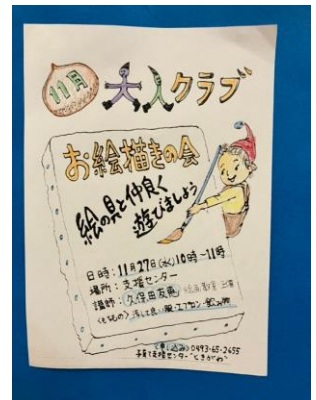 11月
大人クラブ
お絵描きの会
絵の具と仲良く
遊びましょう
日時:11月27日(水)10時~11時
場所:支援センター
講師:久保田
<もちもの>汚して良い服・エプロン・飲み物
(申し込み)0493-65-2655
子育て支援センター"ときがわ"